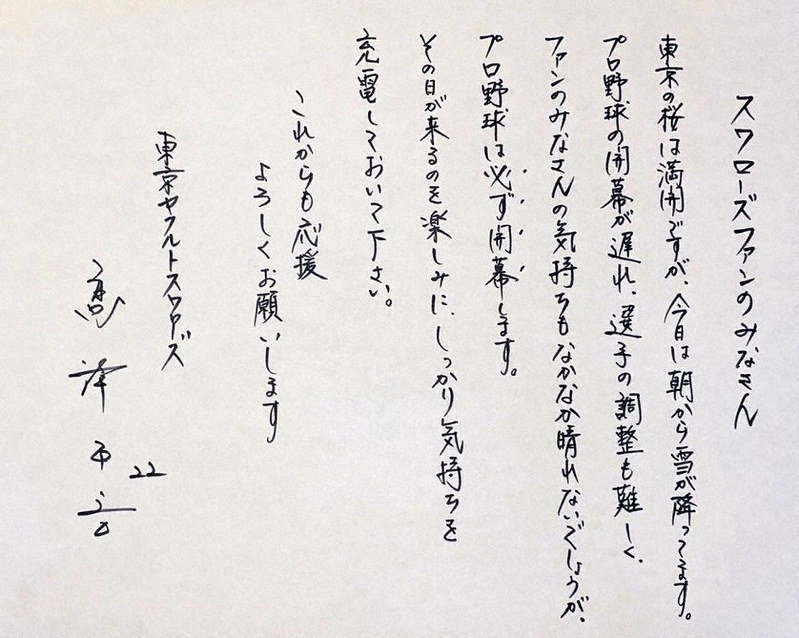 スワローズファンのみなさん
東京の桜は満開ですが、今日は朝から雪が降ってます。
プロ野球の開幕が遅れ、選手の調整も難しく、
ファンのみなさんの気持ちもなかなか晴れないでしょうが、
プロ野球は必ず開幕します。
その日が来るのを楽しみに、しっかり気持ちを
充電しておいて下さい。
これからも応援
よろしくお願いします
東京ヤクルトスワローズ
高津臣吾
22